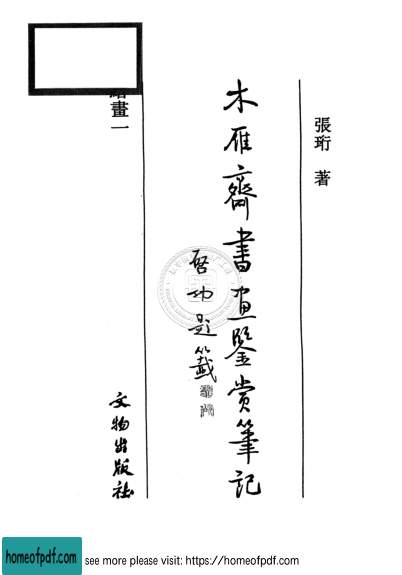 張珩 著
木雁齋書畫鑒賞筆記
啓功題籤
繪畫一
文物出版社
homeofpdf.com see more please visit: https://homeofpdf.com